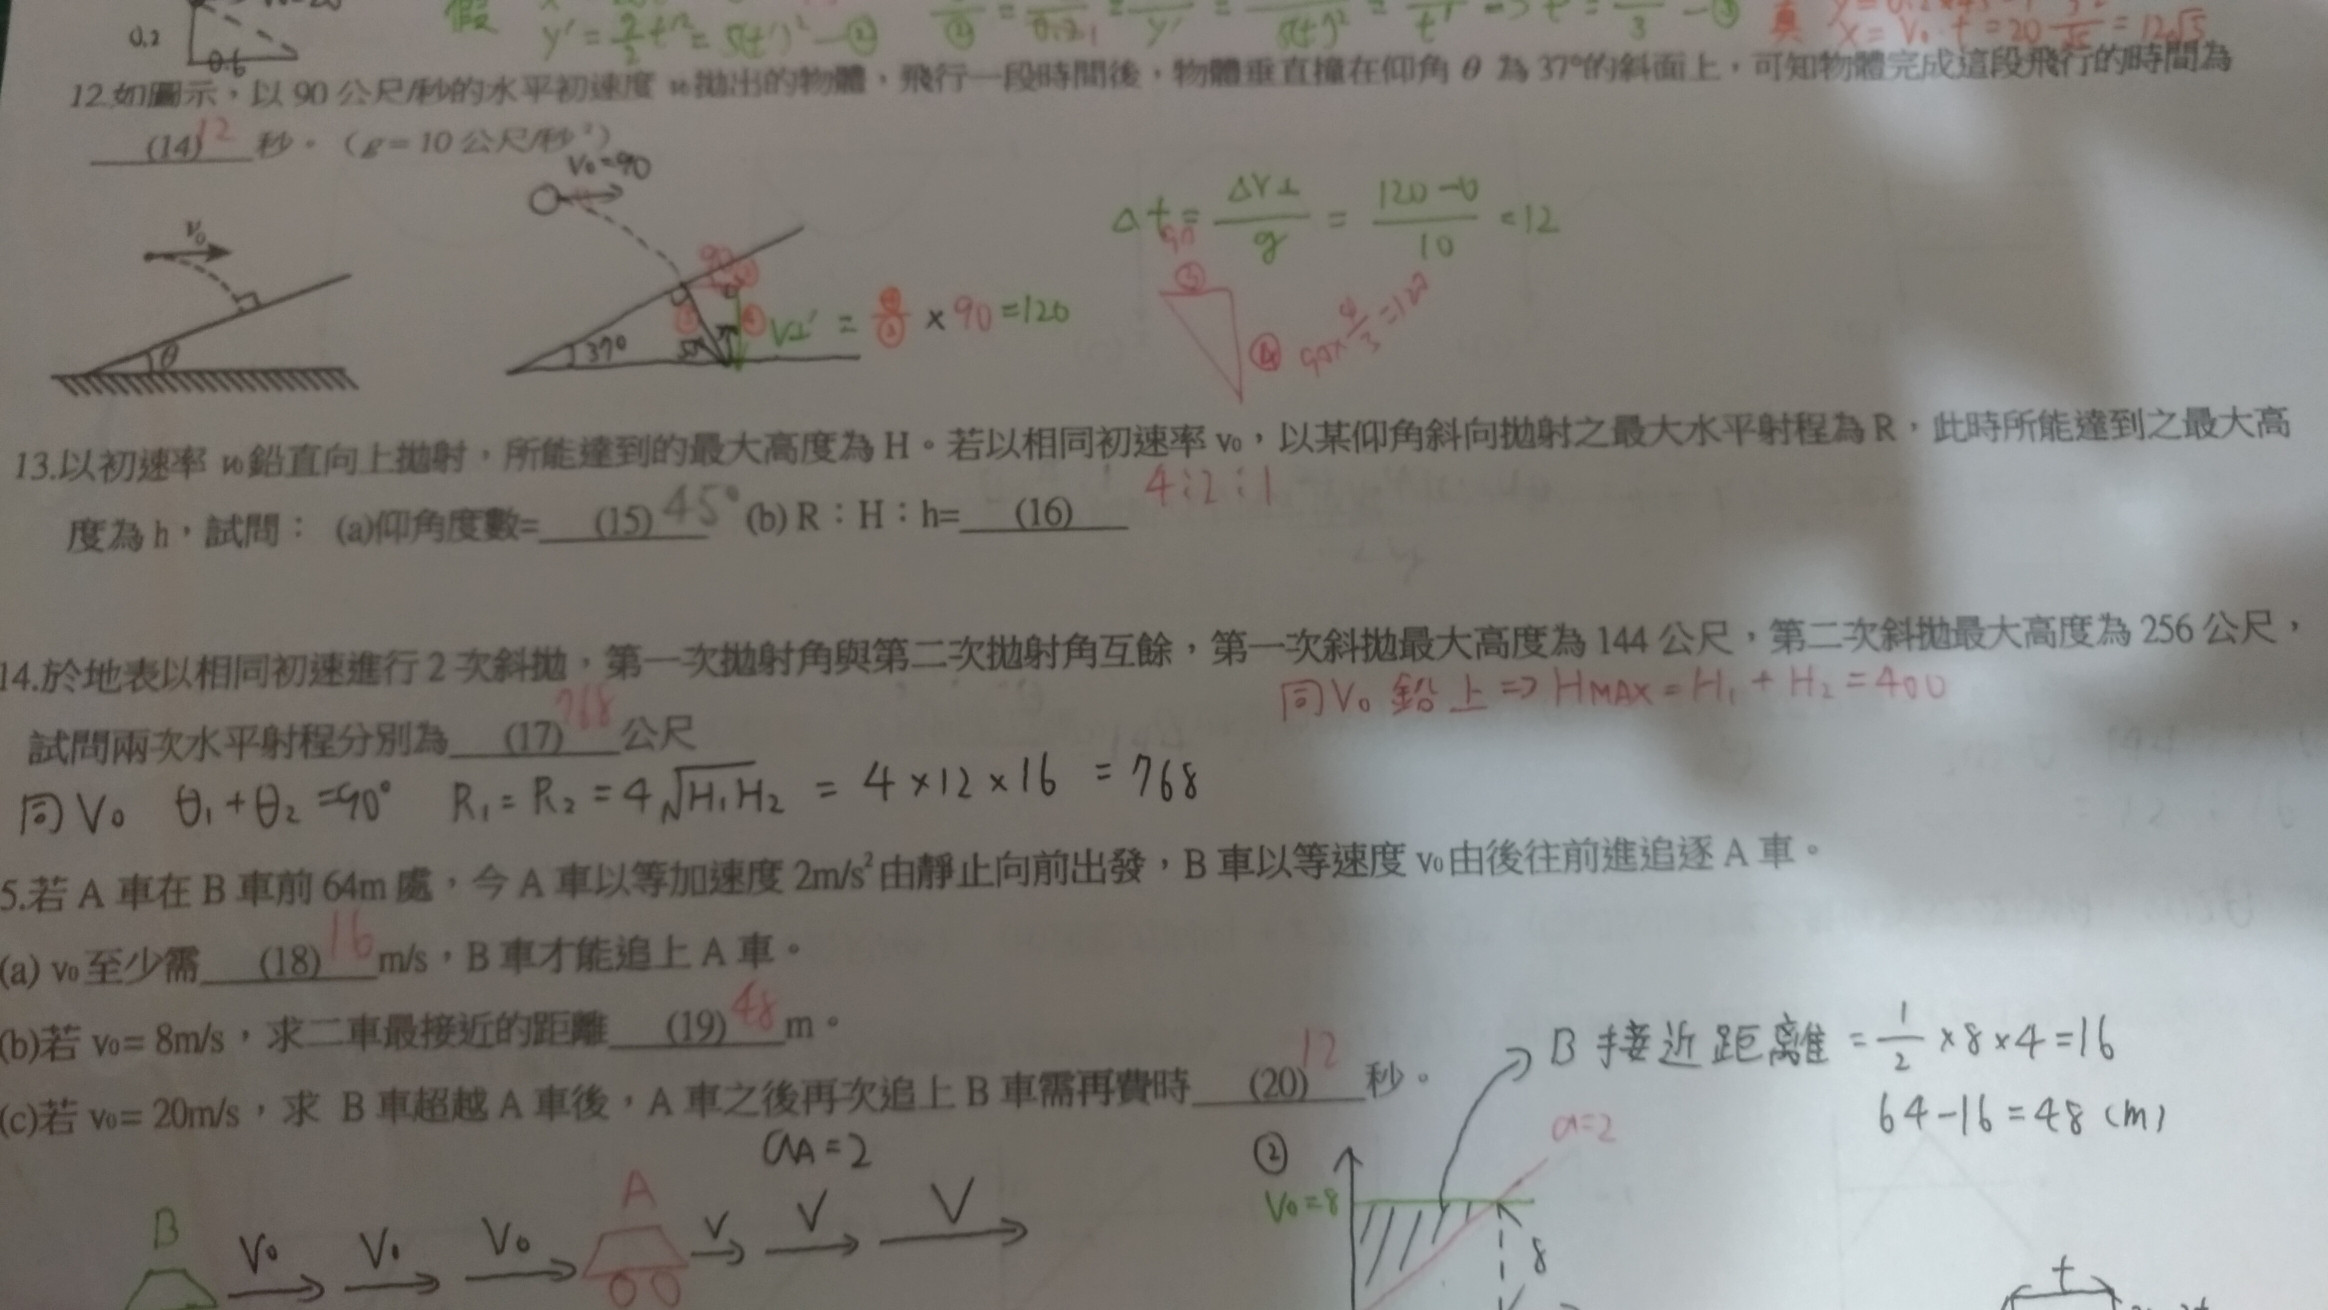 0.2
0.6
假
y' = g/2 t'² = 5(t')² —②
x = V₀ · t = 20
= 12√5
12.如圖示，以 90 公尺/秒的水平初速度 v₀拋出的物體，飛行一段時間後，物體垂直撞在仰角 θ 為 37°的斜面上，可知物體完成這段飛行的時間為
(14) 12 秒。（g = 10 公尺/秒²）
V₀=90
v₀
θ
37°
90
V⊥' = ④/③ × 90 = 120
Δt = ΔV⊥/g = 120-0/10 = 12
90
③
④ 90×4/3=120
13.以初速率 v₀鉛直向上拋射，所能達到的最大高度為 H。若以相同初速率 v₀，以某仰角斜向拋射之最大水平射程為 R，此時所能達到之最大高
度為 h，試問： (a)仰角度數= (15) 45° (b) R：H：h= (16) 4:2:1
14.於地表以相同初速進行 2 次斜拋，第一次拋射角與第二次拋射角互餘，第一次斜拋最大高度為 144 公尺，第二次斜拋最大高度為 256 公尺，
同V₀ 鉛上 => HMAX = H₁ + H₂ = 400
試問兩次水平射程分別為 (17) 768 公尺
同 V₀ θ₁+θ₂=90° R₁ = R₂ = 4√H₁H₂ = 4×12×16 = 768
5.若 A 車在 B 車前 64m 處，今 A 車以等加速度 2m/s²由靜止向前出發，B 車以等速度 v₀由後往前進追逐 A 車。
(a) v₀至少需 (18) 16 m/s，B 車才能追上 A 車。
(b)若 v₀= 8m/s，求二車最接近的距離 (19) 48 m。
(c)若 v₀= 20m/s，求 B 車超越 A 車後，A 車之後再次追上 B 車需再費時 (20) 12 秒。
B 接近距離 = 1/2 ×8×4=16
64-16=48 (m)
aA=2
B V₀ V₀ V₀ A V V V
②
a=2
V₀=8
8
t